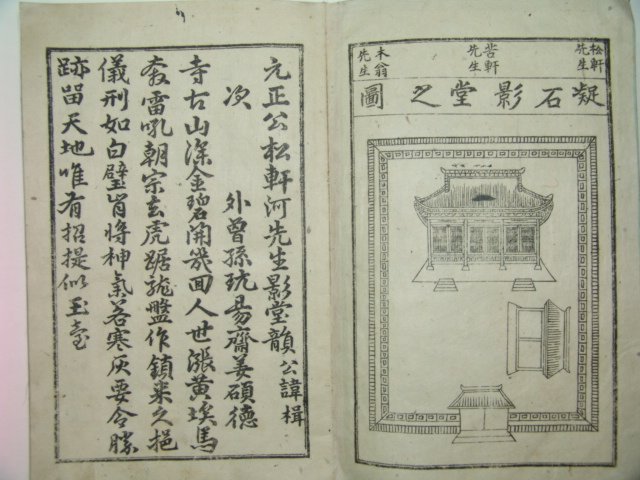 松軒先生
苦軒先生
木翁先生
凝石影堂之圖
元正公松軒河先生影堂韻 公諱楫
次 外曾孫玩易齋姜碩德
寺古山深金碧開幾回人世漲黃埃馬
奔雷吼朝宗去虎踞龍盤作鎮來之挹
儀刑如白璧肯將神氣若寒灰要令勝
跡留天地唯有招提似玉臺